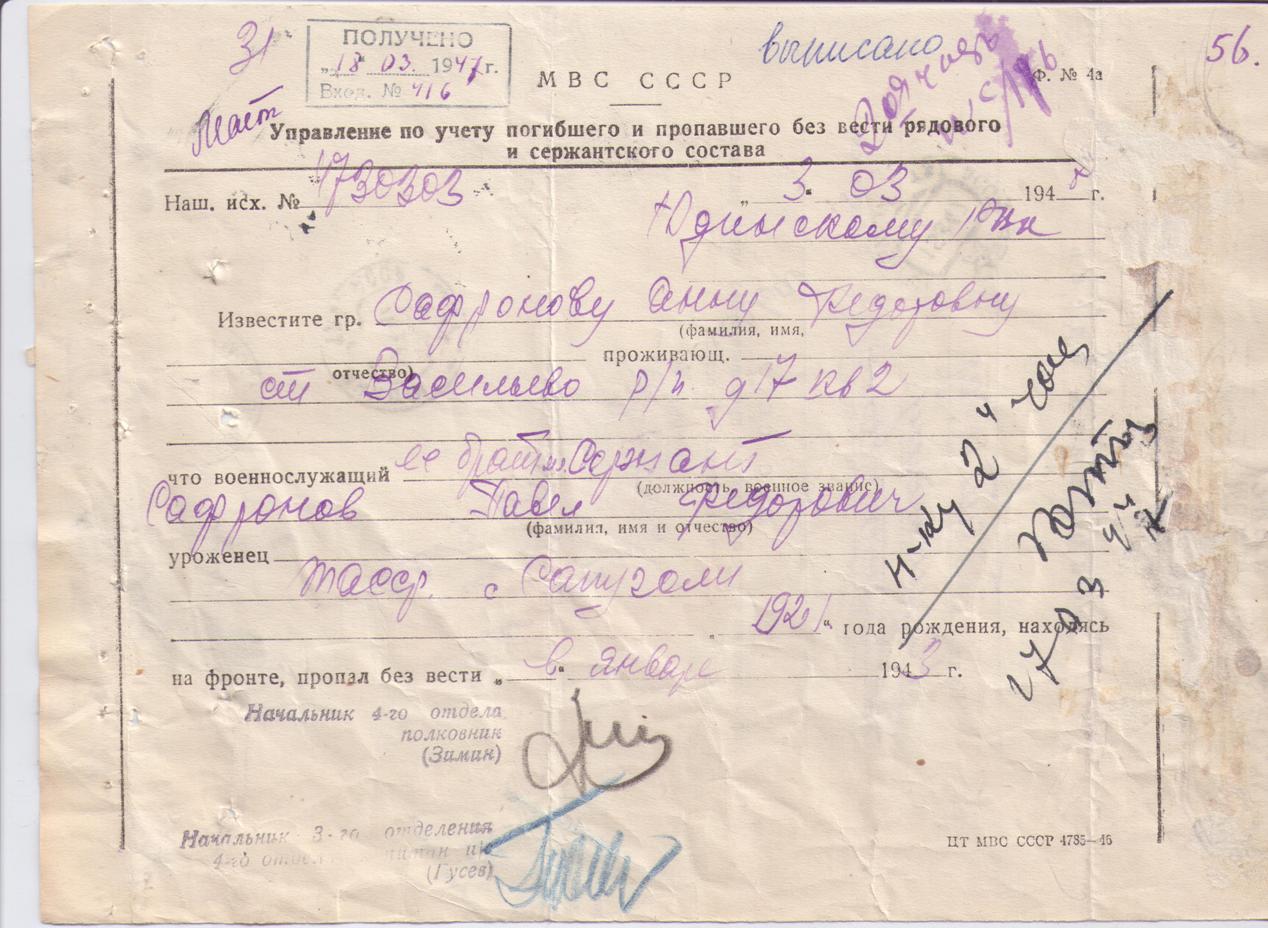 31
ПОЛУЧЕНО
„18“ 03. 1947 г.
Вход. № 416
выписано
56.
МВС СССР
Ф. № 4а
Управление по учету погибшего и пропавшего без вести рядового
и сержантского состава
Наш. исх. № 1730303
„3“ 03 194 г.
Юдинскому РВК
Известите гр. Сафронову Анну Федоровну
(фамилия, имя,
отчество) проживающ.
ст Васильево д 17 кв 2
что военнослужащий ее брат Сержант
(должность, военное звание)
Сафронов Павел Федорович
(фамилия, имя и отчество)
уроженец
ТАССР. с
1921 года рождения, находясь
на фронте, пропал без вести „в“ январе 1943 г.
Н-ку 2 ч
Начальник 4-го отдела
полковник
(Зимин)
Начальник 3-го отделения
4-го
(Гусев)
ЦТ МВС СССР 4785—46